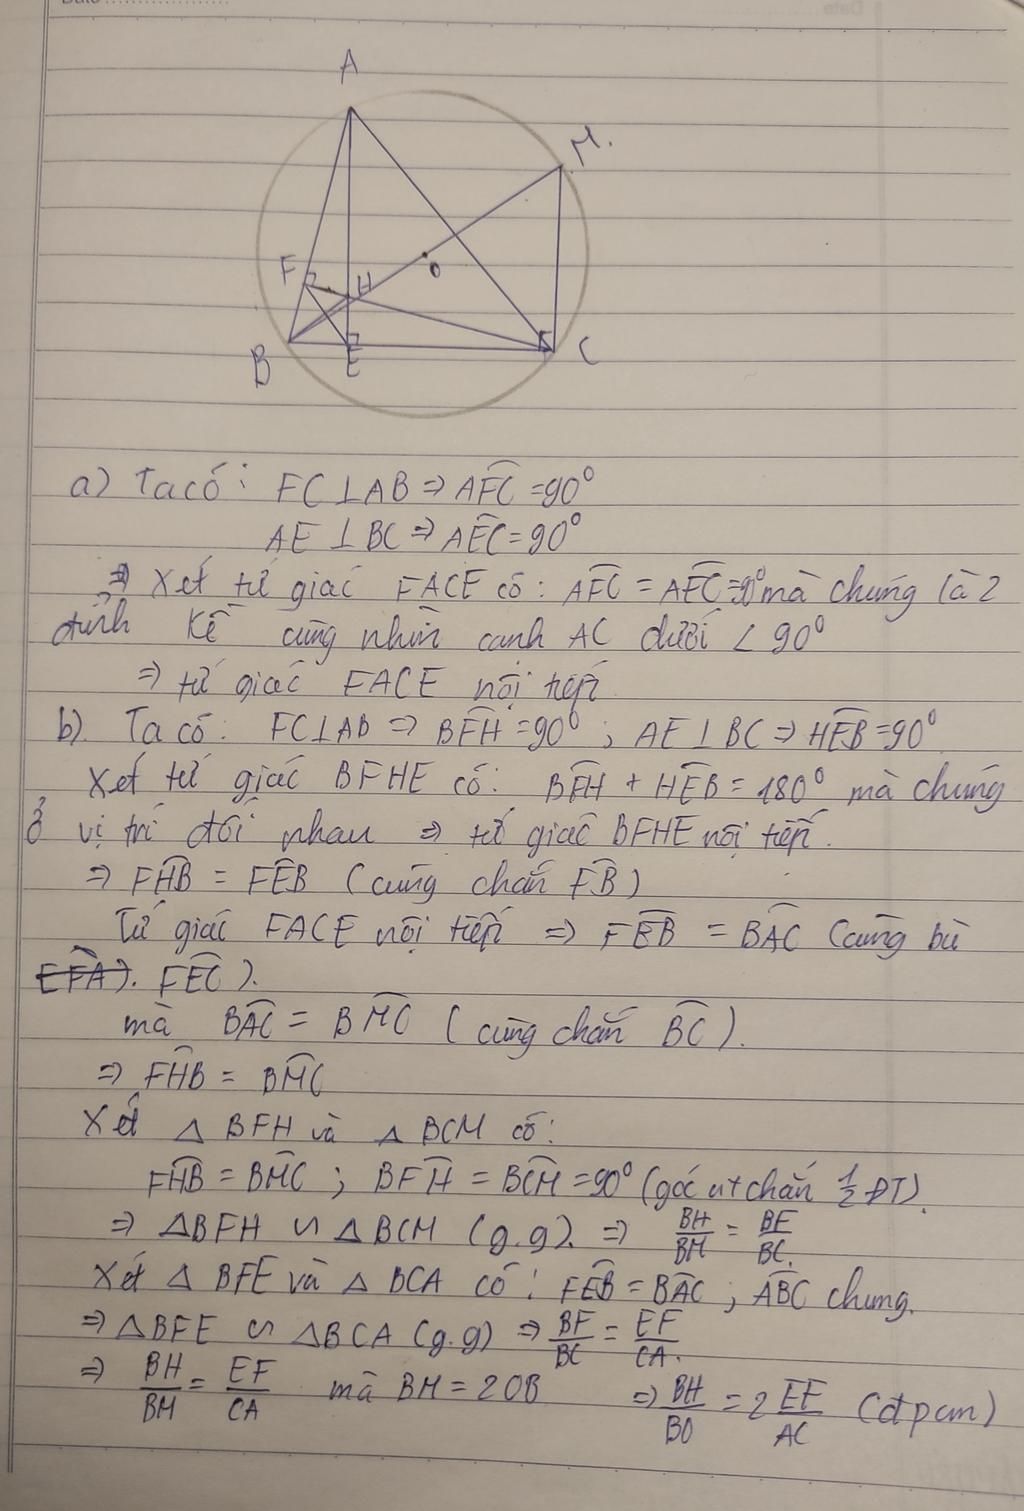 Date
A
M.
F
H
O
B
E
C
a) Ta có: FC⊥AB ⇒ AFC = 90°
AE ⊥ BC ⇒ AEC = 90°
⇒ Xét tứ giác FACE có: AFC = AEC = 90° mà chúng là 2
đỉnh kề cùng nhìn cạnh AC dưới ∠ 90°
⇒ tứ giác FACE nội tiếp
b) Ta có: FC⊥AB ⇒ BFH = 90° ; AE ⊥ BC ⇒ HEB = 90°
Xét tứ giác BFHE có: BFH + HEB = 180° mà chúng
ở vị trí đối nhau ⇒ tứ giác BFHE nội tiếp.
⇒ FHB = FEB (cùng chắn FB)
Tứ giác FACE nội tiếp ⇒ FEB = BAC (cùng bù
EFA). FEC).
mà BAC = BMC (cùng chắn BC).
⇒ FHB = BMC
Xét △ BFH và △ BCM có:
FHB = BMC ; BFH = BCM = 90° (góc nt chắn 1/2 ĐT).
⇒ △BFH ∽ △BCM (g.g). ⇒ BH/BM = BF/BC.
Xét △ BFE và △ BCA có: FEB = BAC ; ABC chung.
⇒ △BFE ∽ △BCA (g.g) ⇒ BF/BC = EF/CA.
⇒ BH/BM = EF/CA mà BM = 2OB ⇒ BH/BO = 2 EF/AC (đpcm)